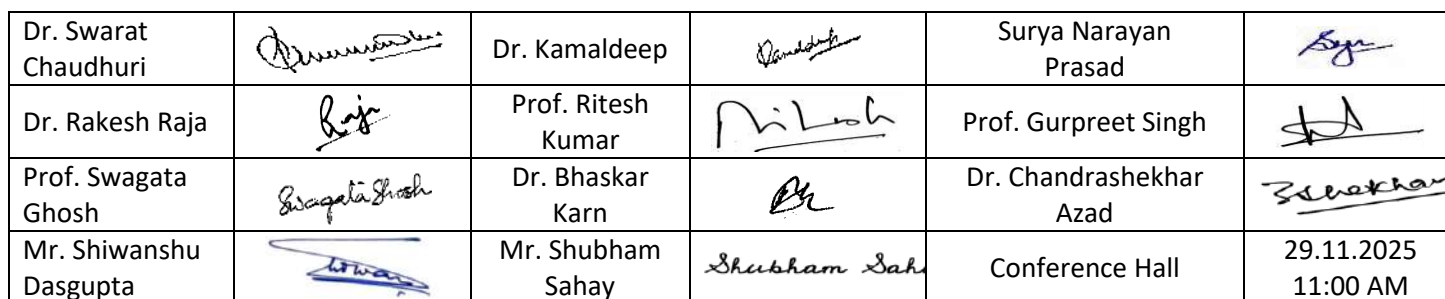 Dr. Swarat
Chaudhuri
Dr. Kamaldeep
Surya Narayan
Prasad
Dr. Rakesh Raja
Raja
Prof. Ritesh
Kumar
Ritesh
Prof. Gurpreet Singh
Prof. Swagata
Ghosh
Swagata Ghosh
Dr. Bhaskar
Karn
Dr. Chandrashekhar
Azad
Mr. Shiwanshu
Dasgupta
Mr. Shubham
Sahay
Shubham Saha
Conference Hall
29.11.2025
11:00 AM